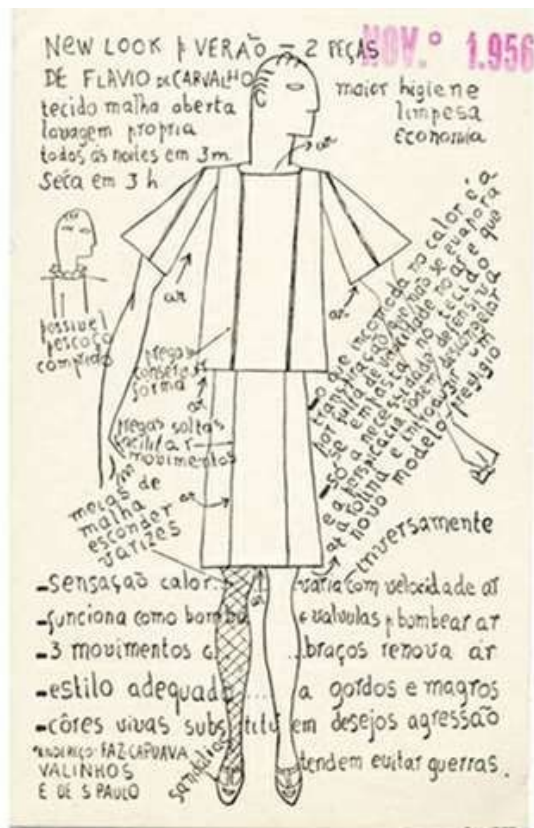 NOV.º 1.956
NEW LOOK p VERÃO – 2 PEÇAS
DE FLAVIO DE CARVALHO
tecido malha aberta
lavagem propria
todas as noites em 3m
Seca em 3 h
maior higiene
limpesa
economia
ar
possivel
pescoço
comprido
ar
ar
pregas
conservar
forma
ar
pregas soltas
facilitar
movimentos
ar
meias de
malha
esconder
varizes
–o que incomoda no calor é a
transpiração que não se evapora
por falta de velocidade no ar e que
se empasta no tecido
–só a necessidade defensiva
e a perspicacia podem desmantelar
a rotina e introduzir um
novo modelo prestigio
ar
inversamente
–sensação calor... varia com velocidade ar
–funciona como bomba e valvulas p bombear ar
–3 movimentos ... braços renova ar
–estilo adequado.... a gordos e magros
–côres vivas substituem desejos agressão
tendem evitar guerras.
ENDEREÇO: FAZ. CAPUAVA
VALINHOS
E DE S PAULO
sandalias